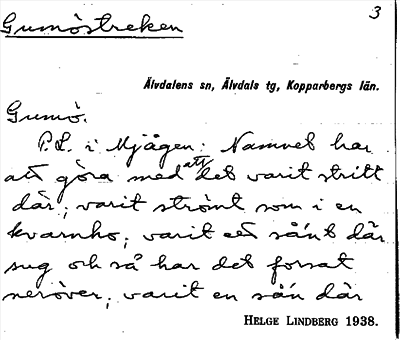 Gumöstreken
3
Älvdalens sn, Älvdals tg, Kopparbergs län.
Gumö.
P.L. i Mjågen: Namnet har
att göra med att det varit stritt
där; varit strömt som i en
kvarnho; varit ett sånt där
sug och så har det forsat
neröver; varit en sån där
HELGE LINDBERG 1938.